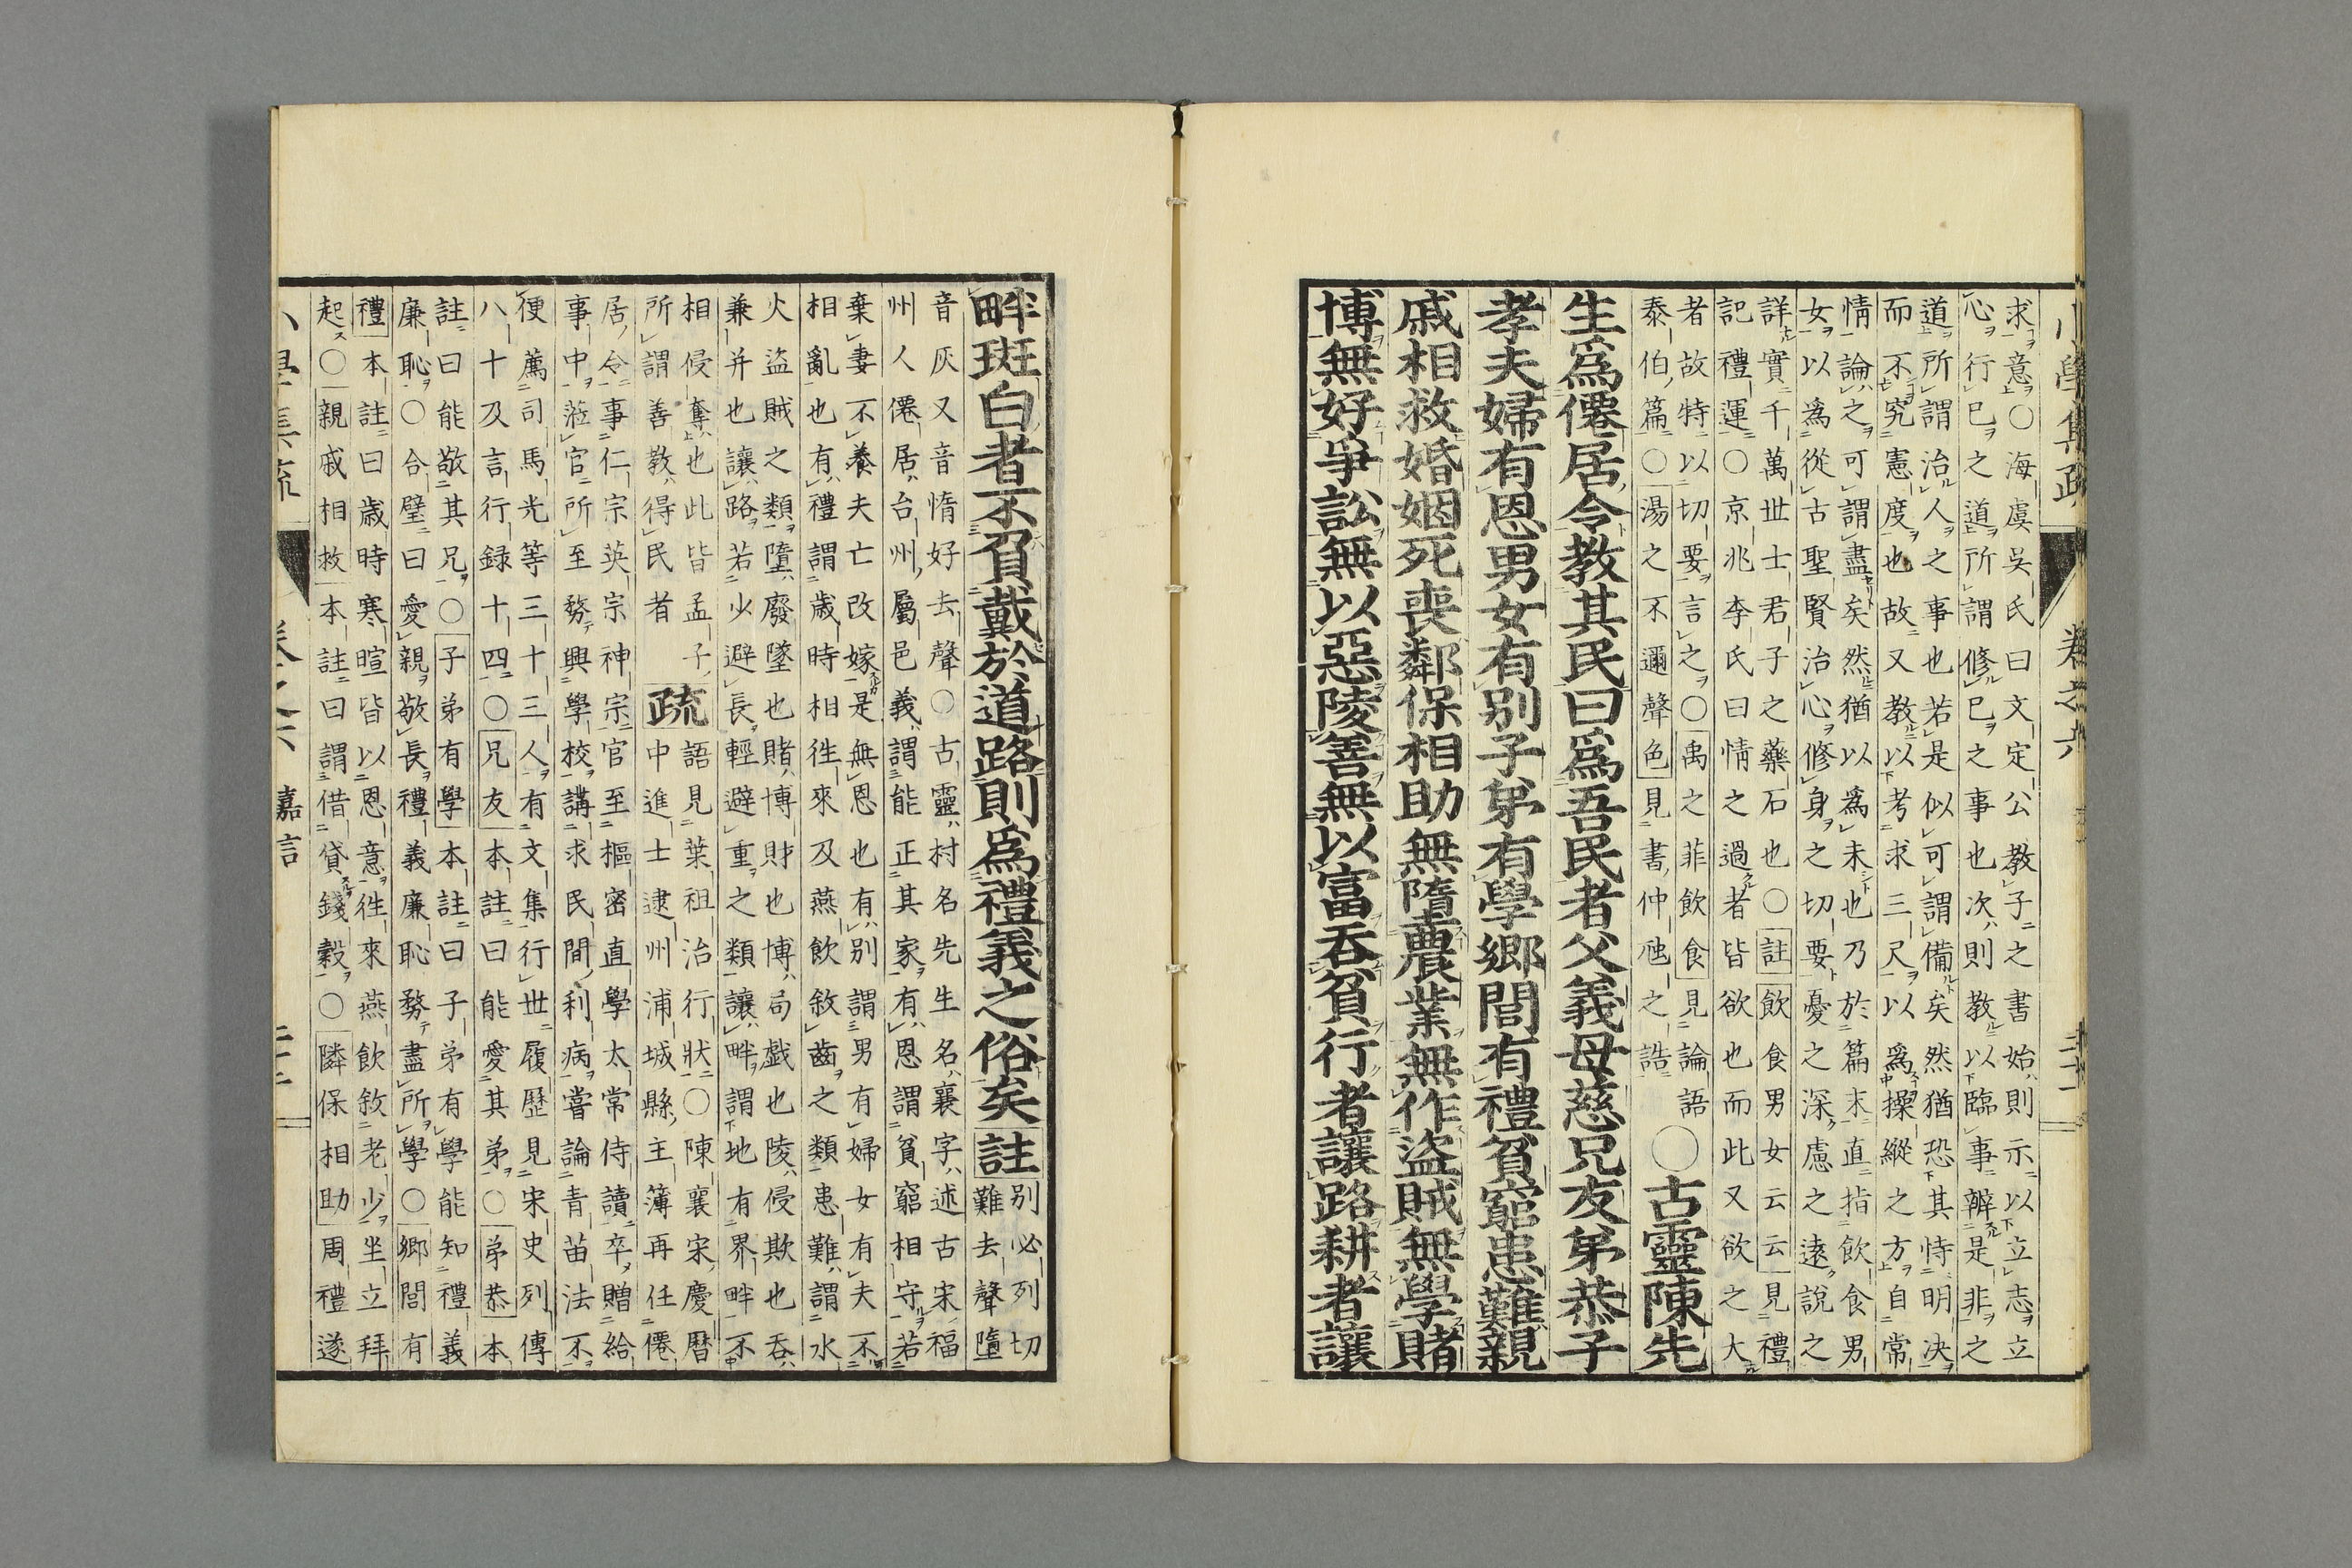 求意○海虞吳氏曰文定公教子之書始則示以立志立
心行己之道所謂修己之事也次則教以臨事辨是非之
道所謂治人之事也若是似可謂備矣然猶恐其恃明決
而不究憲度也故又教以考求三尺以爲操縱之方自常
情論之可謂盡矣然猶以爲未也乃於篇末直指飲食男
女以爲從古聖賢治心修身之切要憂之深慮之遠說之
詳實千萬世士君子之藥石也○註飲食男女云云見禮
記禮運○京兆李氏曰情之過者皆欲也而此又欲之大
者故特以切要言之○禹之菲飲食見論語
泰伯篇○湯之不邇聲色見書仲虺之誥
○古靈陳先
生爲僊居令教其民曰爲吾民者父義母慈兄友弟恭子
孝夫婦有恩男女有別子弟有學鄉閭有禮貧窮患難親
戚相救婚姻死喪鄰保相助無墮農業無作盜賊無學賭
博無好爭訟無以惡陵善無以富吞貧行者讓路耕者讓
小學集疏 卷之六
畔斑白者不負戴於道路則爲禮義之俗矣註
別必列切
難去聲墮
音灰又音惰好去聲○古靈村名先生名襄字述古宋福
州人僊居台州屬邑義謂能正其家有恩謂貧窮相守若
棄妻不養夫亡改嫁是無恩也有別謂男有婦女有夫不
相亂也有禮謂歲時相往來及燕飲敘齒之類患難謂水
火盜賊之類墮廢墜也賭博財也博局戲也陵侵欺也吞
兼并也讓路若少避長輕避重之類讓畔謂地有界畔不
相侵奪也此皆孟子
所謂善教得民者
疏
語見葉祖洽行狀○陳襄宋慶曆
中進士建州浦城縣主簿再任僊
居令事仁宗英宗神宗官至樞密直學太常侍讀卒贈給
事中蒞官所至務興學校講求民間利病嘗論青苗法不
便薦司馬光等三十三人有文集行世履歷見宋史列傳
八十及言行錄十四○兄友本註曰能愛其弟○弟恭本
註曰能敬其兄○子弟有學本註曰子弟有學能知禮義
廉恥○合璧曰愛親敬長禮義廉恥務盡所學○鄉閭有
禮本註曰歲時寒暄皆以恩意往來燕飲敘老少坐立拜
起○親戚相救本註曰謂借貸錢穀○隣保相助周禮遂
小學集疏 卷之六 嘉言